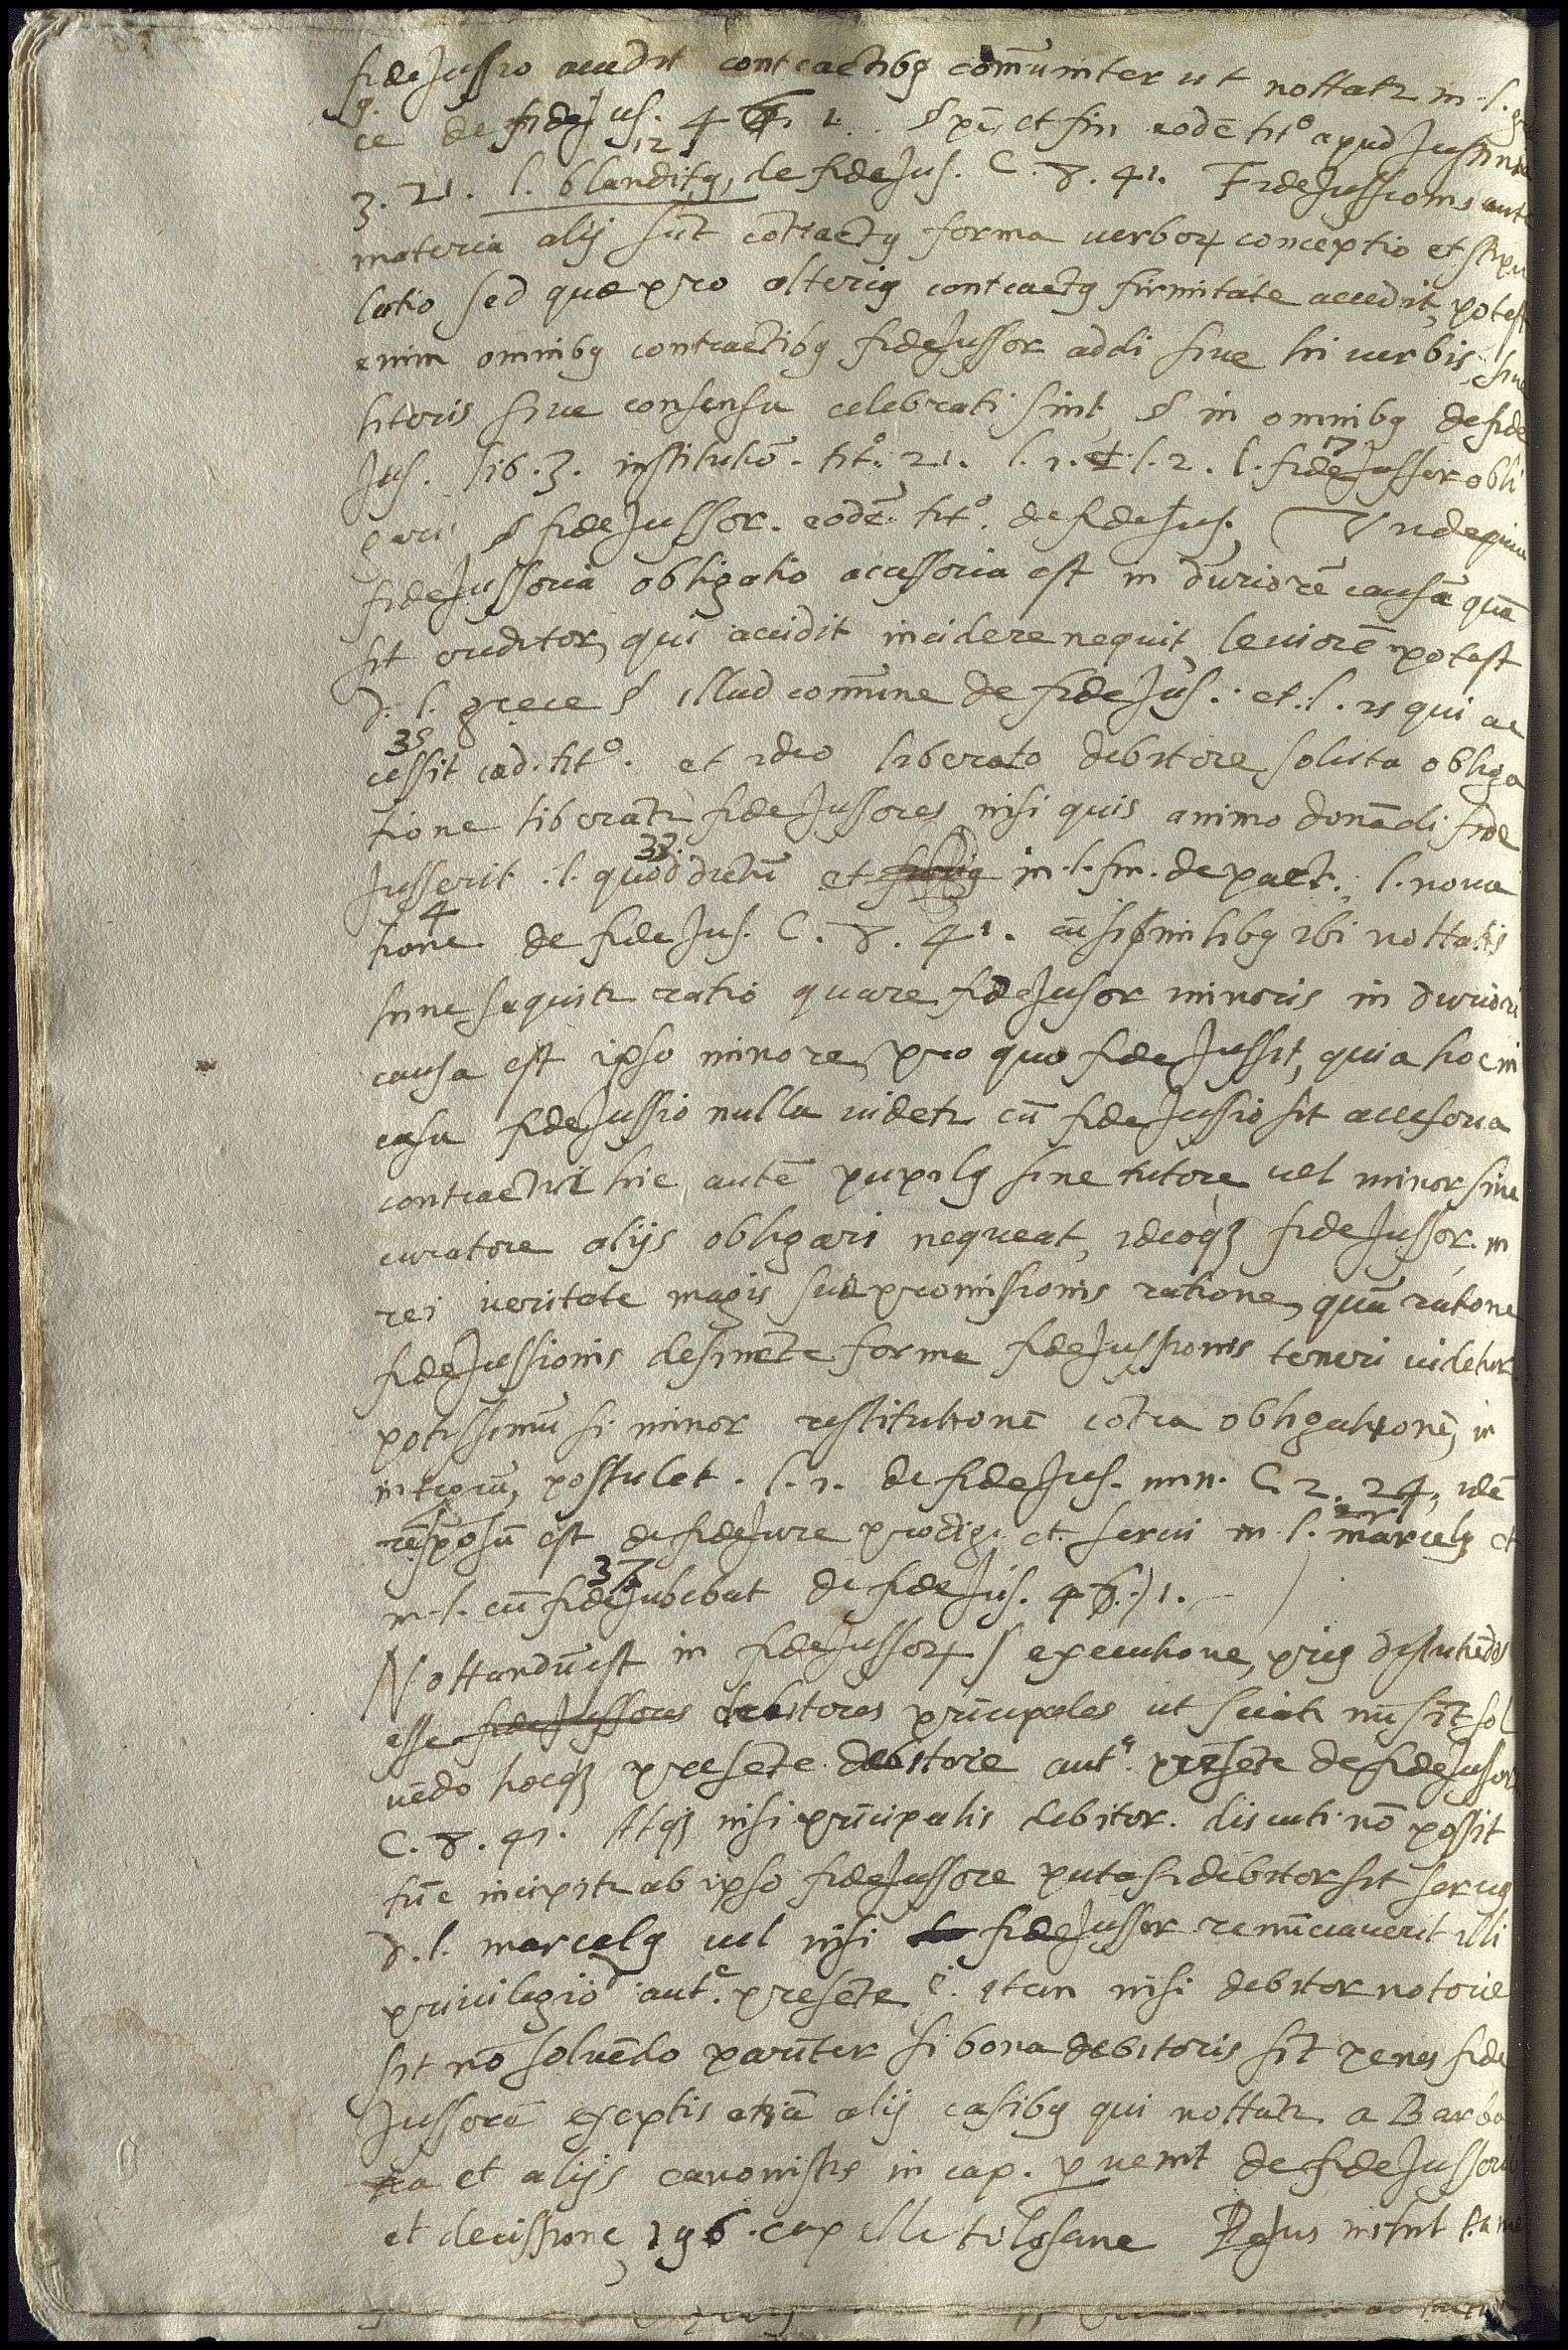 fideJussio accedit contractibꝯ com̃uniter ut nottatr in l. gre
ce de fideJus. 46. 1. § pē. et fin eodē titᵒ apud Justinia
3. 21. l. blanditꝯ, de fideJus. C. 8. 41. FideJussionis autē
materia alij sūt cōtractꝯ forma verboꝝ conceptio et stipu
latio sed quæ pro alteriꝯ contractꝯ firmitate accedit, potest
enim omnibꝯ contractibꝯ fideJussor addi sive hi verbis, sive
literis sive consensu celebrati sint, § in omnibꝯ de fide
Jus. lib. 3. institutiō. titᵒ. 21. l. 1. et l. 2. l. fideJussor obli
gari § fideJussor. eodē. titᵒ. de fideJus.
fideJussoria obligatio acessoria est in duriorē causā quā
sit creditor, qui accidit incidere nequit, leviorē potest
d. l. grece § illud com̃une de fideJus. et. l. is qui ac
cessit ead. titᵒ. et ideo liberato debitore, soluta obliga
tione liberātr fideJussores nisi quis animo donādi fide
Jusserit. l. quod dictū et in l. fin. de pact. l. nova
tione de fideJus. C. 8. 41. cū similibꝯ ibi nottatis
hinc sequitr ratio quare fideJusor minoris in duriori
causa est ipso minore, pro quo fideJussit, quia hoc in
casu fideJussio nulla videtr cū fideJussio sit accesoria
contractui hic autē pupilꝯ sine tutore vel minor sine
curatore alijs obligari nequeat, ideoqꝫ fideJussor in
rei veritate magis suæ promissionis ratione, quā ratione
fideJussionis desinēte forma fideJussionis teneri videtur
potissimū si minor restitutionē cōtra obligationē, in
integrū, postulet. l. 1. de fideJus. min. C. 2. 24, idē
rēsposū est de fideJure prodigi et servi in l. marcelꝯ et
in l. cū fideJubebat de fideJus. 46. 1.
Nottandū est in fideJussoꝝ executione, priꝯ discutiēdos
esse fideJussores debitores prīcipales ut sciatr nū sīt sol
vēdo hocqꝫ presēte debitore autᵉ. presēte de fideJusor
C. 8. 41. Atqꝫ nisi prīcipalis debitor. discuti nō possit
tūc incipitr ab ipso fideJussore puta si debitor sit servꝯ
d. l. marcelꝯ vel nisi fideJussor renūciaverit illi
privilegio d. autᵉ. presēte C. item nisi debitor notorie
sit nō solvēdo pariter si bona debitoris sīt penes fide
Jussorē exceptis etiā alij casibꝯ qui nottātr a Barba
tia et alijs canonistis in cap. pvenit de fideJussorib
et decissione, 196. capelle tolosane